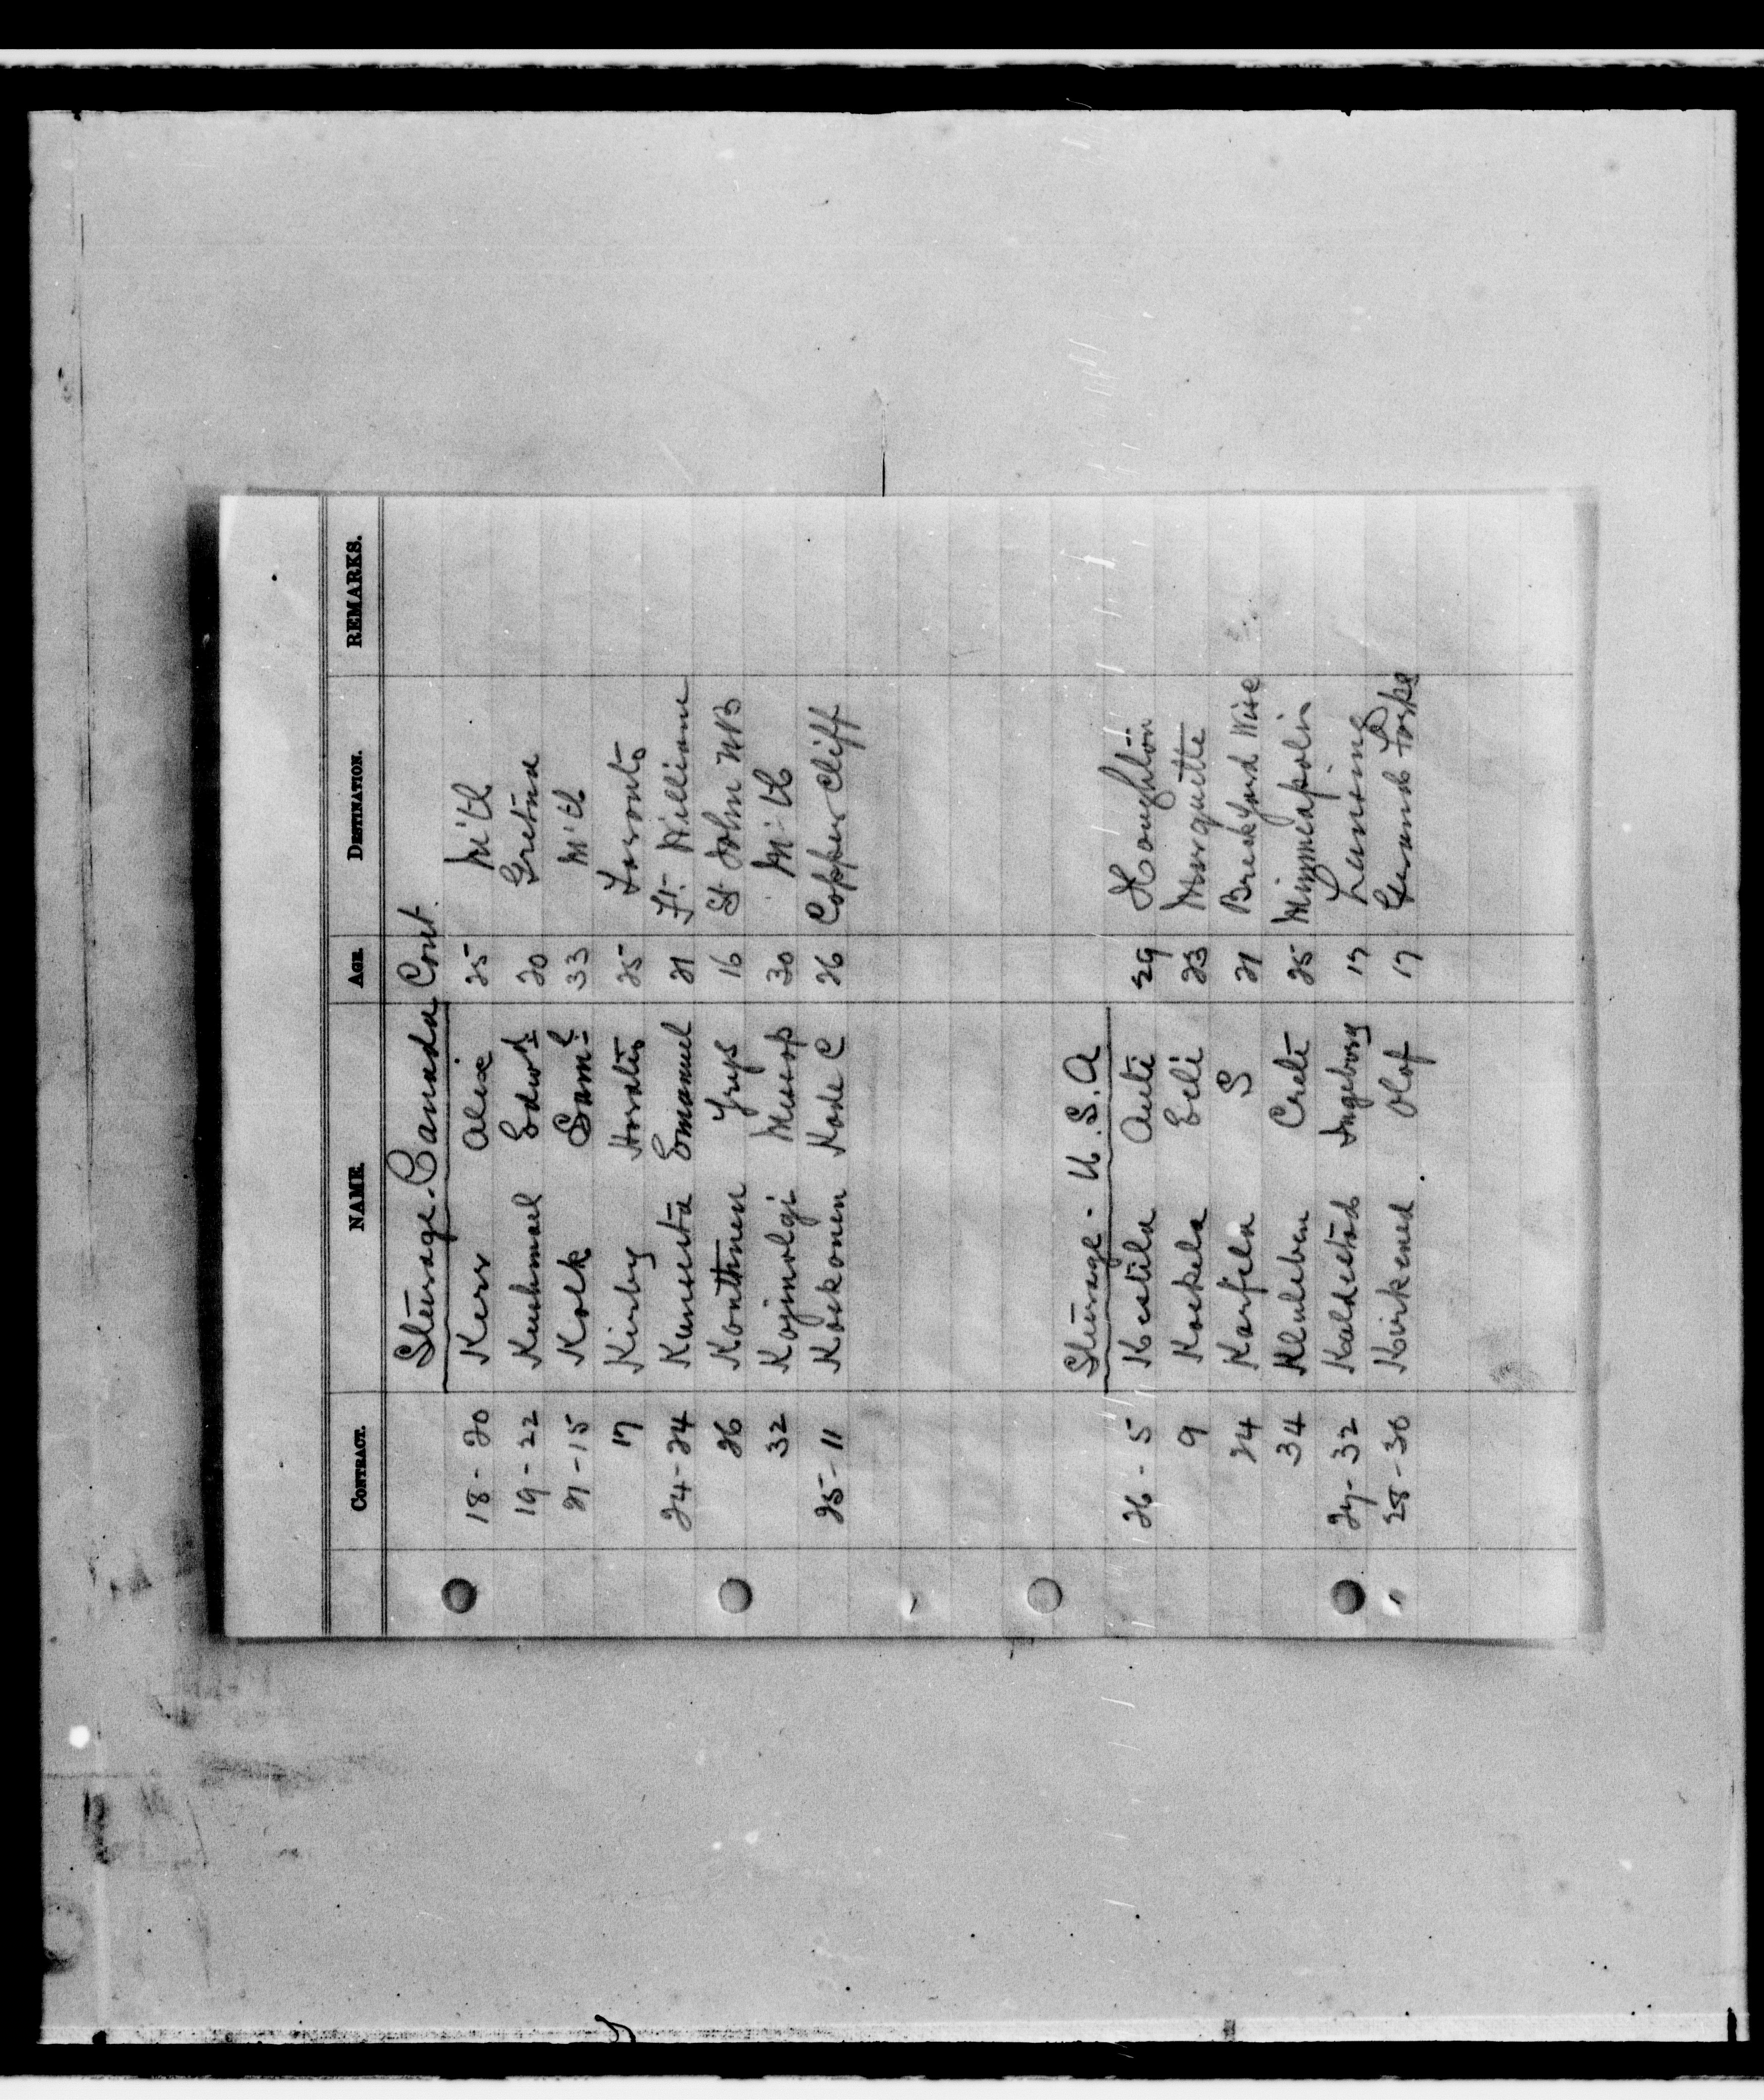 CONTRACT. NAME. AGE. DESTINATION. REMARKS.
Steerage. Canada Cont.
18-20 Kerr Alice 25 M'tl
19-22 Kushmael Edwd 20 Gretna
21-15 Kolk Saml 33 M'tl
17 Kirby Horatio 25 Toronto
24-24 Emanuel 21 Ft. William
26 Konthnen 16 St John NB
32 30 M'tl
25-11 Koskonen 26 Copper Cliff
Steerage - U.S.A
26-5 Kestila Anti 29 Houghton
9 Koskela Eeli 23 Marquette
24 Karfela S 21
34 Crete 25 Minneapolis
27-32 Kaldestad Ingeborg 17 Lansing
28-30 Olof 17 Grand Forks